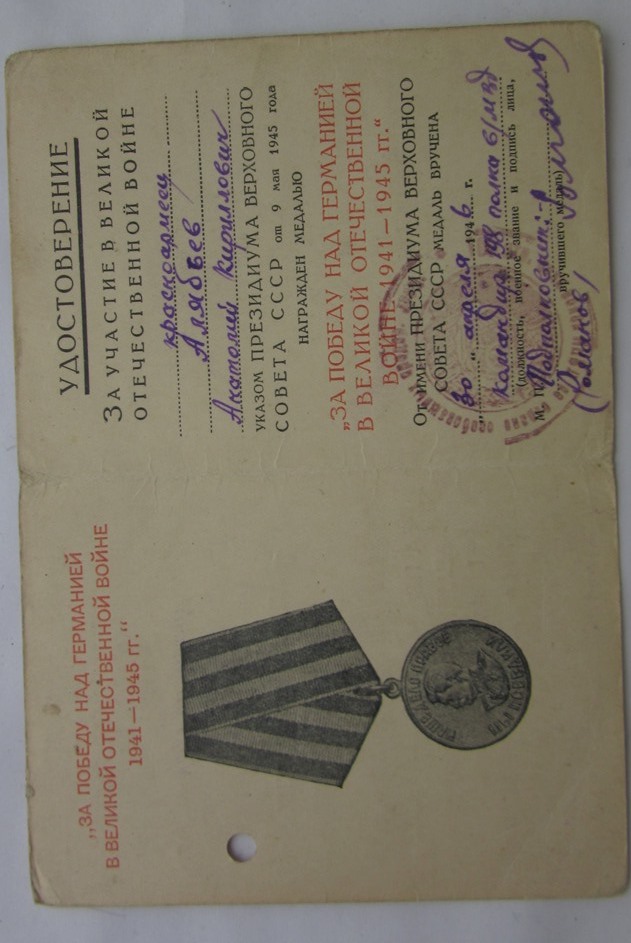 „ЗА ПОБЕДУ НАД ГЕРМАНИЕЙ
В ВЕЛИКОЙ ОТЕЧЕСТВЕННОЙ ВОЙНЕ
1941—1945 гг.“
НАШЕ ДЕЛО ПРАВОЕ
МЫ ПОБЕДИЛИ
УДОСТОВЕРЕНИЕ
ЗА УЧАСТИЕ В ВЕЛИКОЙ
ОТЕЧЕСТВЕННОЙ ВОЙНЕ
красноармеец
Алябьев
Анатолий Кириллович
УКАЗОМ ПРЕЗИДИУМА ВЕРХОВНОГО
СОВЕТА СССР от 9 мая 1945 года
НАГРАЖДЕН МЕДАЛЬЮ
„ЗА ПОБЕДУ НАД ГЕРМАНИЕЙ
В ВЕЛИКОЙ ОТЕЧЕСТВЕННОЙ
ВОЙНЕ 1941—1945 гг.“
От ИМЕНИ ПРЕЗИДИУМА ВЕРХОВНОГО
СОВЕТА СССР МЕДАЛЬ ВРУЧЕНА
30 „ апреля 1946 г.
Командир полка
(должность, военное звание и подпись лица,
М. П. Подполковник
вручившего медаль)